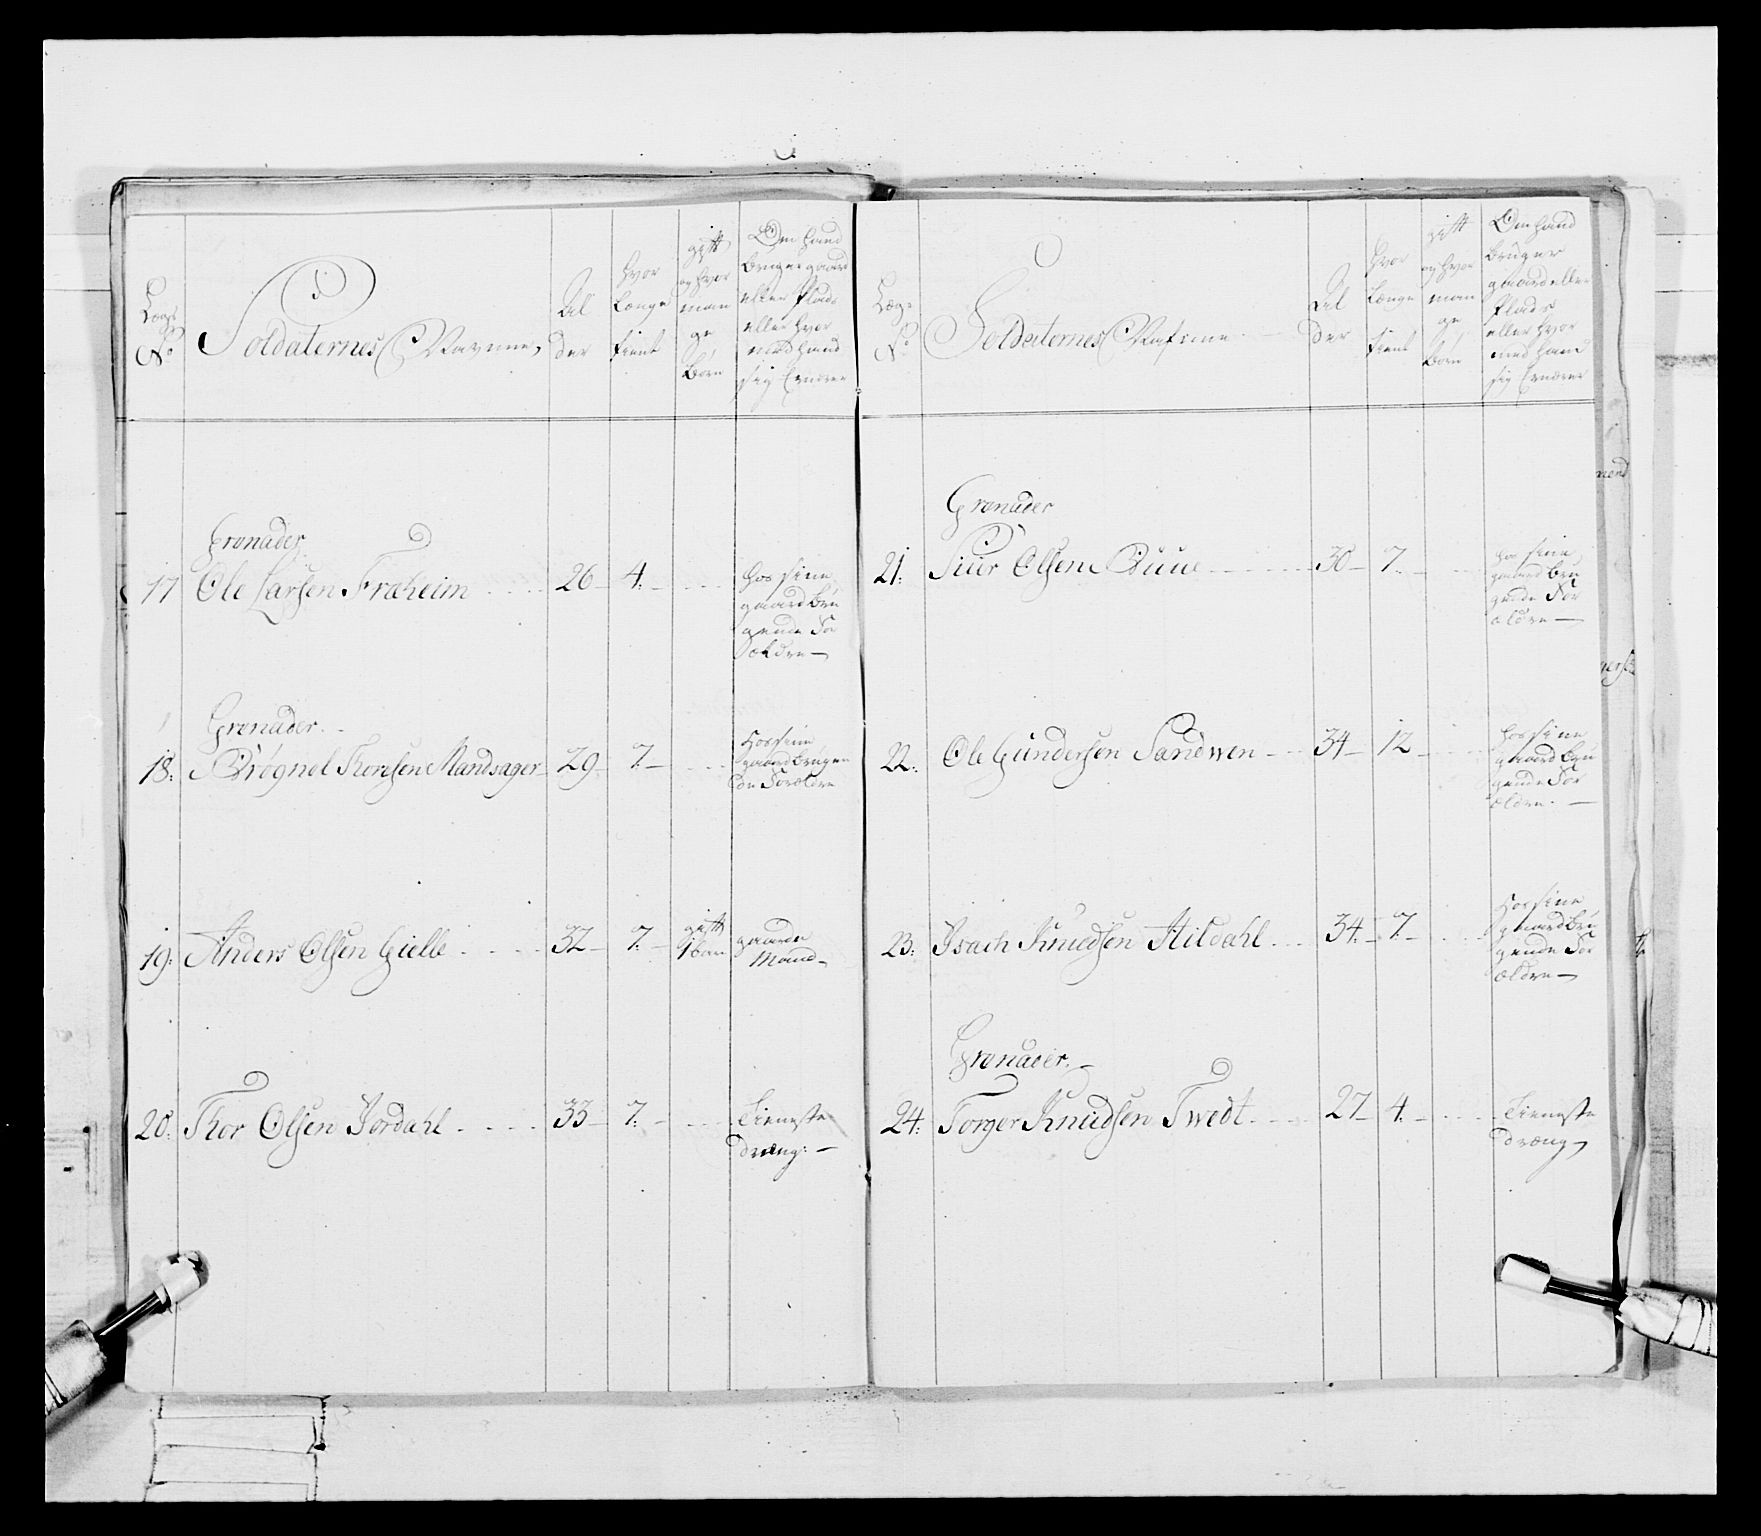 Lægs
No
Soldaternes Navnne,
Al
der
hvor
længe
tient
gift
og hvor
man
ge
börn
Om hand
bruger gaard
eller Plads
eller hvor
med hand
sig Ernærer
Grenader
17 Ole Larsen Fræheim 26 4.
hos sine
gaard bru
gende For
ældre
Grenader
18: Brÿgnel Thoresen Mandsager 29 7.
hos sine
gaard brugen
de Forældre
19: Anders Olsen Gielle 32 7.
gift
1 barn
gaards
Mand
20: Thor Olsen Jordahl 33 7.
Tieneste
dræng:
Læg:
No
Soldaternes Nafvne
Al
der
hvor
længe
tient
gift
og hvor
man
ge
börn
Om hand
bruger
gaard eller
Plads
eller hvor
med hand
sig Ernærer
Grenader
21: Siur Olsen Buue 30 7.
hos sine
gaard bru
gende For
ældre
22: Ole Gundersen Sandwen 34 12
hos sine
gaard bru
gende For
ældre.
23: Isach Knudsen Hildahl 34. 7.
hos sine
gaard bru
gende For
ældre
Grenader.
24: Torger Knudsen Twedt 27 4.
Tieneste
dræng